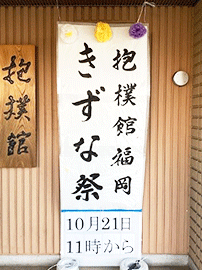 抱樸館福岡
きずな祭
10月21日
11時から
抱樸館